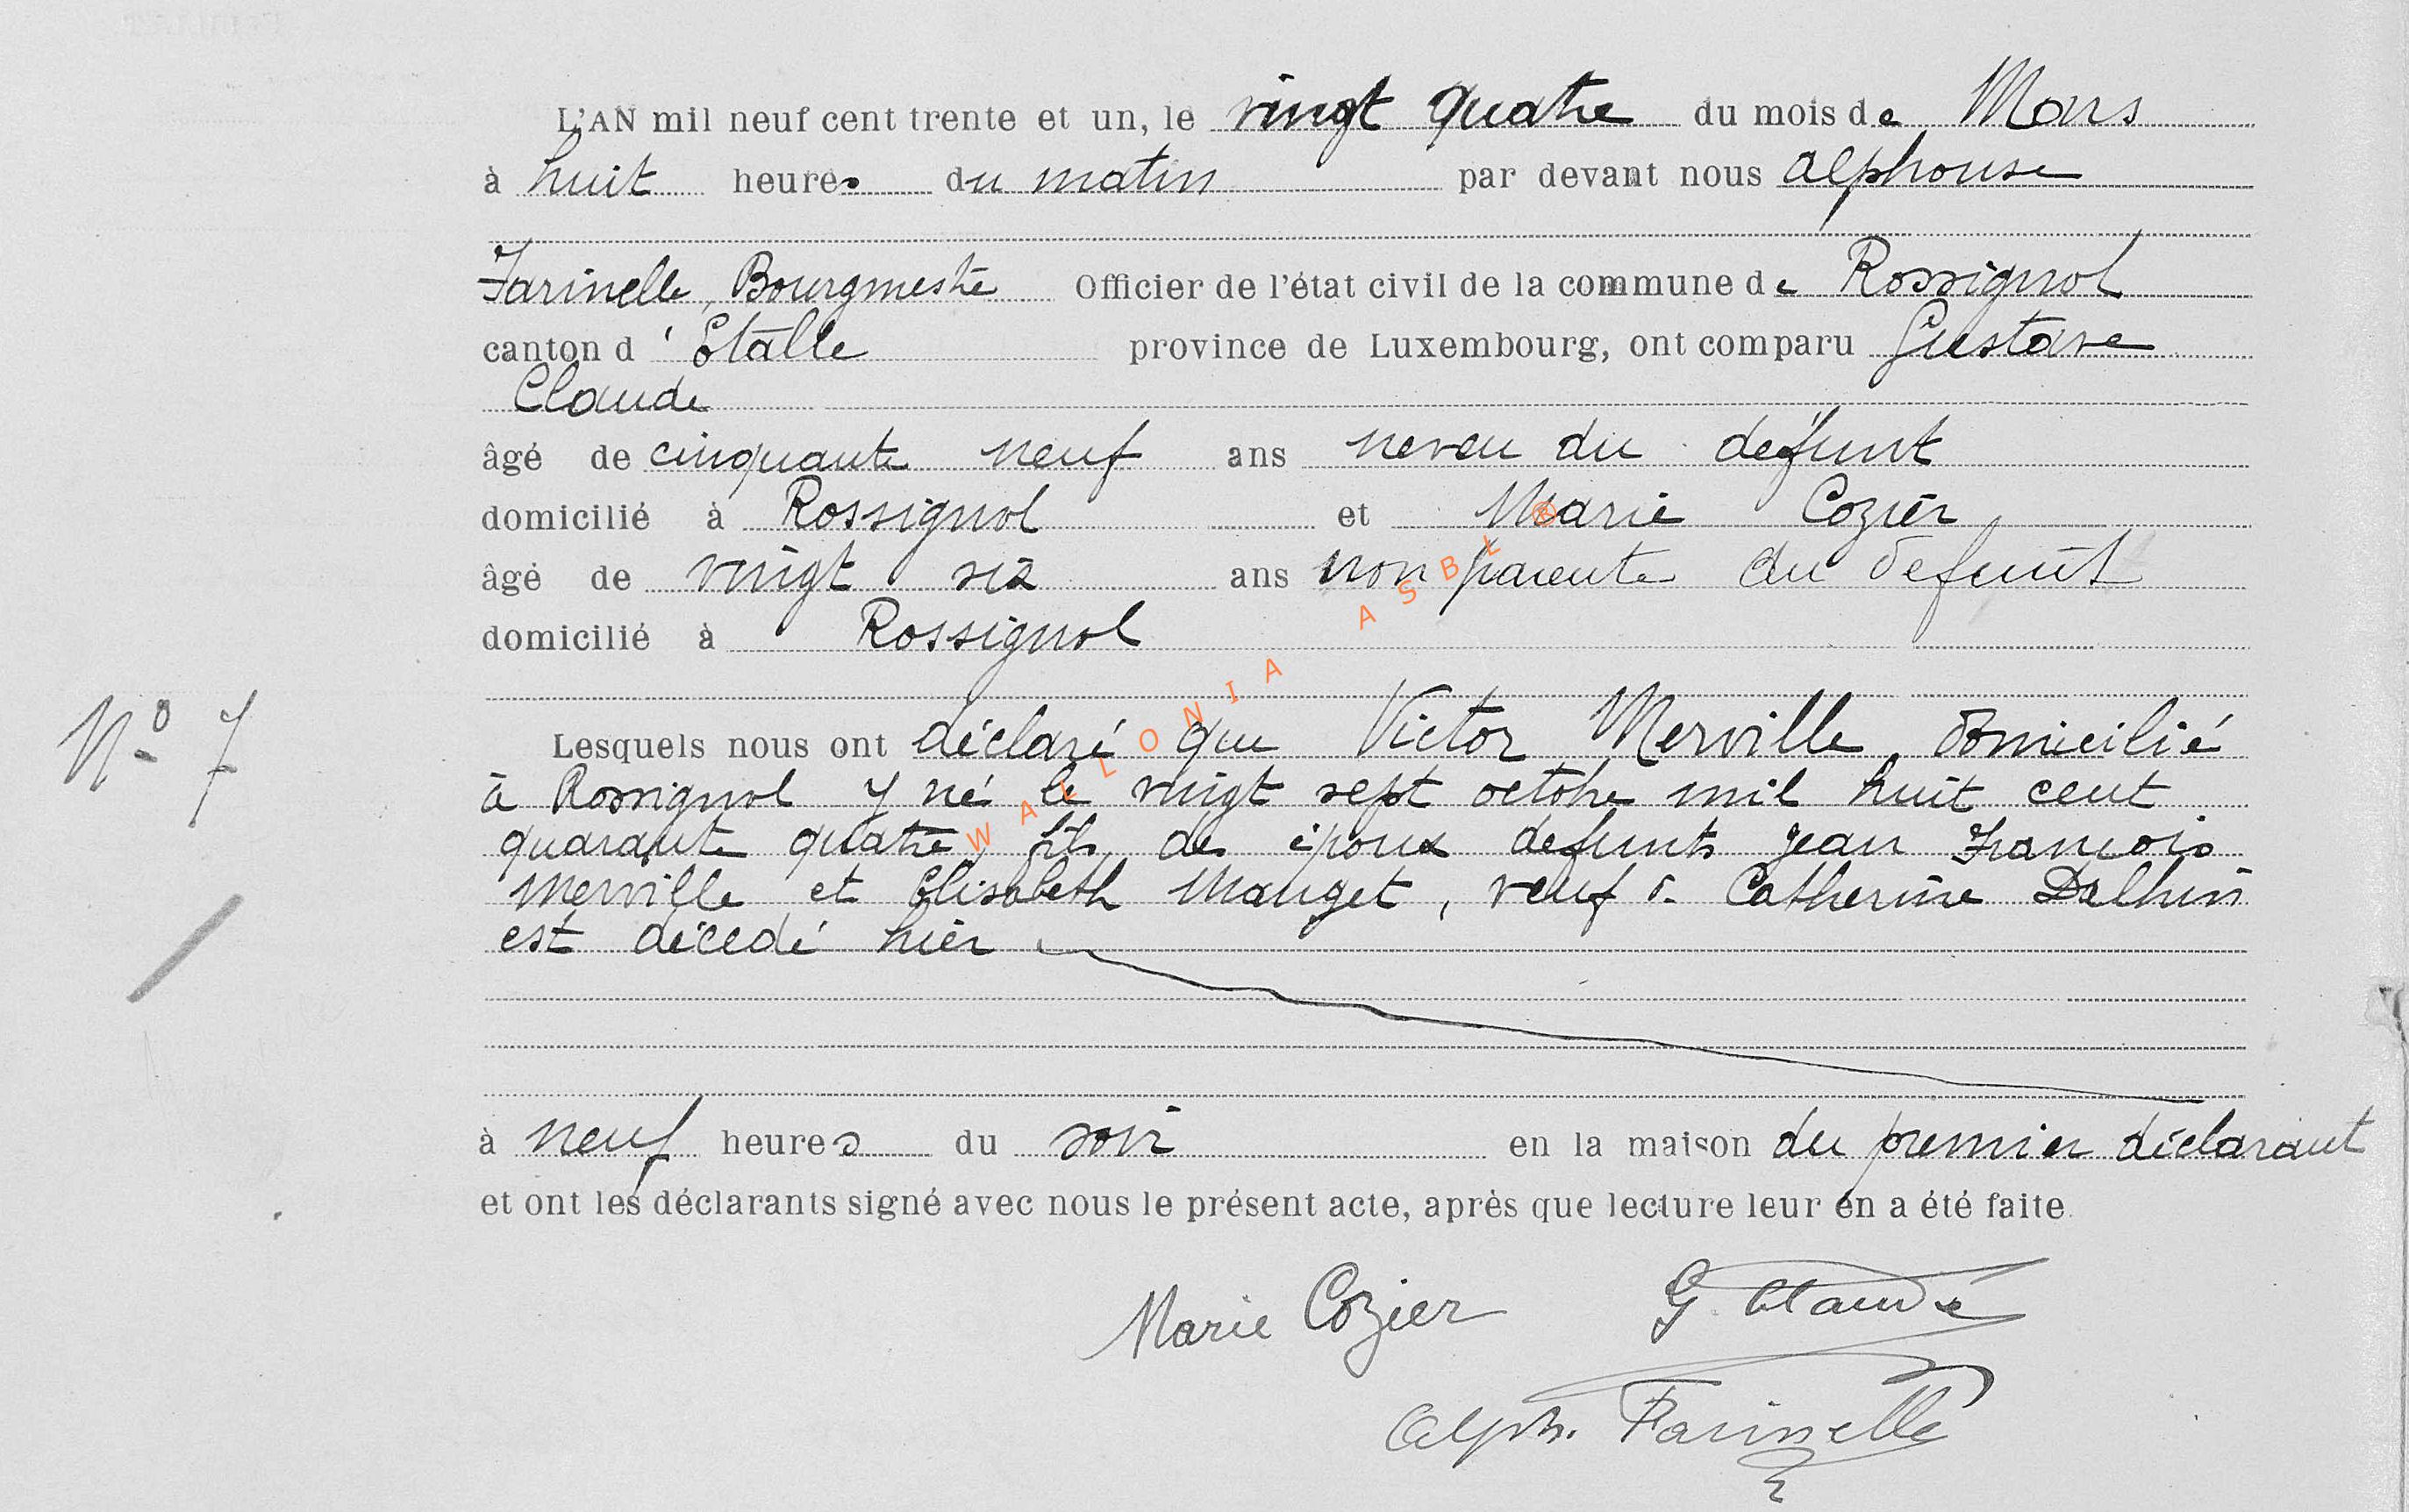 L'AN mil neuf cent trente et un, le vingt quatre du mois de Mars
à huit heures du matin par devant nous Alphonse
Farinelle, Bourgmestre Officier de l'état civil de la commune de Rossignol
canton d'Etalle province de Luxembourg, ont comparu Gustave
Claude
âgé de cinquante neuf ans neveu du défunt
domicilié à Rossignol et Marie Cozier
âgé de vingt six ans non parente du défunt
domicilié à Rossignol
N° 7
Lesquels nous ont déclaré que Victor Merville, domicilié
à Rossignol y né le vingt sept octobre mil huit cent
quarante quatre, fils des époux defunts Jean François
Merville et Elisabeth Mauget, veuf de Catherine Dalhin
est décédé hier
à neuf heures du soir en la maison du premier déclarant
et ont les déclarants signé avec nous le présent acte, après que lecture leur en a été faite.
Marie Cozier G. Claude
Alph. Farinelle
WALLONIA ASBL ®